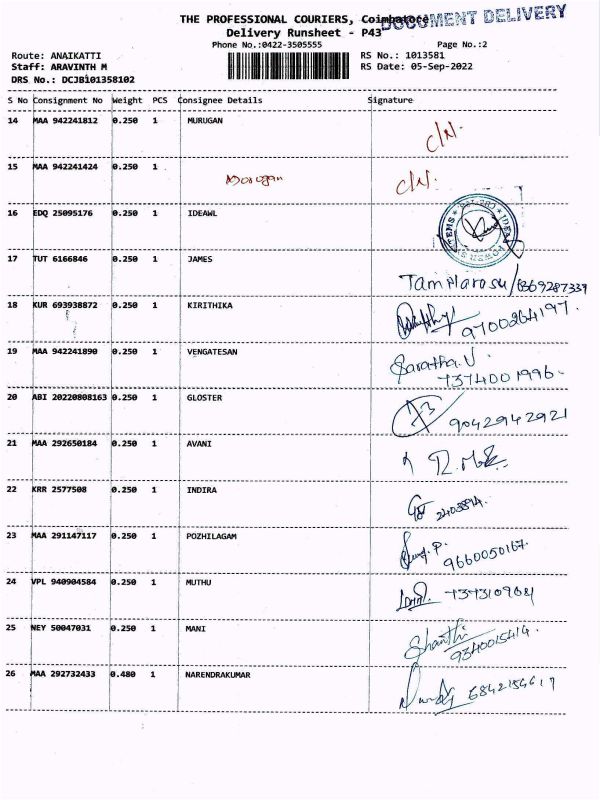 THE PROFESSIONAL COURIERS, Coimbatore
DOCUMENT DELIVERY
Delivery Runsheet - P43
Phone No.:0422-3505555 Page No.:2
Route: ANAIKATTI RS No.: 1013581
Staff: ARAVINTH M RS Date: 05-Sep-2022
DRS No.: DCJB101358102
S No Consignment No Weight PCS Consignee Details Signature
14 MAA 942241812 0.250 1 MURUGAN C/N.
15 MAA 942241424 0.250 1 Murugan C/N.
16 EDQ 25095176 0.250 1 IDEAWL
17 TUT 6166846 0.250 1 JAMES
Tamilarasu/6369287339
18 KUR 693938872 0.250 1 KIRITHIKA
9700264197.
19 MAA 942241890 0.250 1 VENGATESAN
Saratha.V
7374001996.
20 ABI 20220808163 0.250 1 GLOSTER
9042942921
21 MAA 292650184 0.250 1 AVANI
22 KRR 2577508 0.250 1 INDIRA
2403894.
23 MAA 291147117 0.250 1 POZHILAGAM
9660050167.
24 VPL 940904584 0.250 1 MUTHU
25 NEY 50047031 0.250 1 MANI
Shanthi
9340015414.
26 MAA 292732433 0.480 1 NARENDRAKUMAR